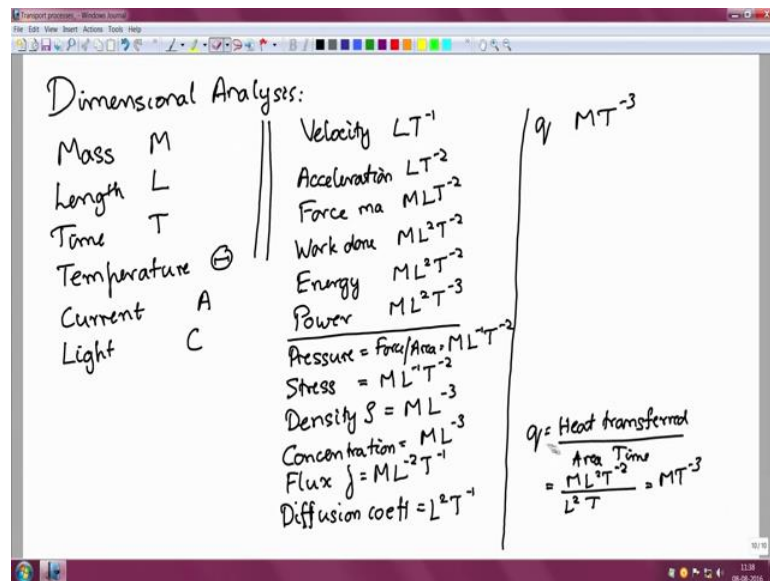 Transport processes - Windows Journal
File Edit View Insert Actions Tools Help
Dimensional Analysis:
Mass M
Length L
Time T
Temperature Θ
Current A
Light C
Velocity LT⁻¹
Acceleration LT⁻²
Force ma MLT⁻²
Work done ML²T⁻²
Energy ML²T⁻²
Power ML²T⁻³
Pressure = Force/Area = ML⁻¹T⁻²
Stress = ML⁻¹T⁻²
Density ρ = ML⁻³
Concentration = ML⁻³
Flux j = ML⁻²T⁻¹
Diffusion coeff = L²T⁻¹
q MT⁻³
q = Heat transferred
Area Time
= ML²T⁻² / L² T = MT⁻³
10/10
11:38
08-08-2016